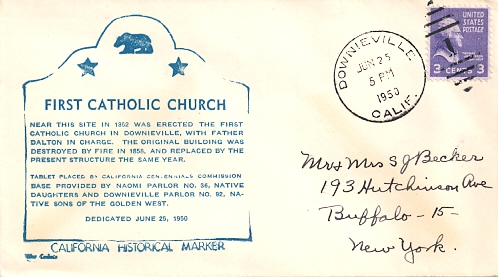 FIRST CATHOLIC CHURCH
NEAR THIS SITE IN 1852 WAS ERECTED THE FIRST
CATHOLIC CHURCH IN DOWNIEVILLE, WITH FATHER
DALTON IN CHARGE. THE ORIGINAL BUILDING WAS
DESTROYED BY FIRE IN 1858, AND REPLACED BY THE
PRESENT STRUCTURE THE SAME YEAR.
TABLET PLACED BY CALIFORNIA CENTENNIALS COMMISSION
BASE PROVIDED BY NAOMI PARLOR NO. 36, NATIVE
DAUGHTERS AND DOWNIEVILLE PARLOR NO. 92, NA-
TIVE SONS OF THE GOLDEN WEST.
DEDICATED JUNE 25, 1950
CALIFORNIA HISTORICAL MARKER
DOWNIEVILLE
JUN 25
5 PM
1950
CALIF.
UNITED
STATES
POSTAGE
3 CENTS 3
Mr & Mrs S J Becker
193 Hutchinson Ave
Buffalo - 15 -
New York.